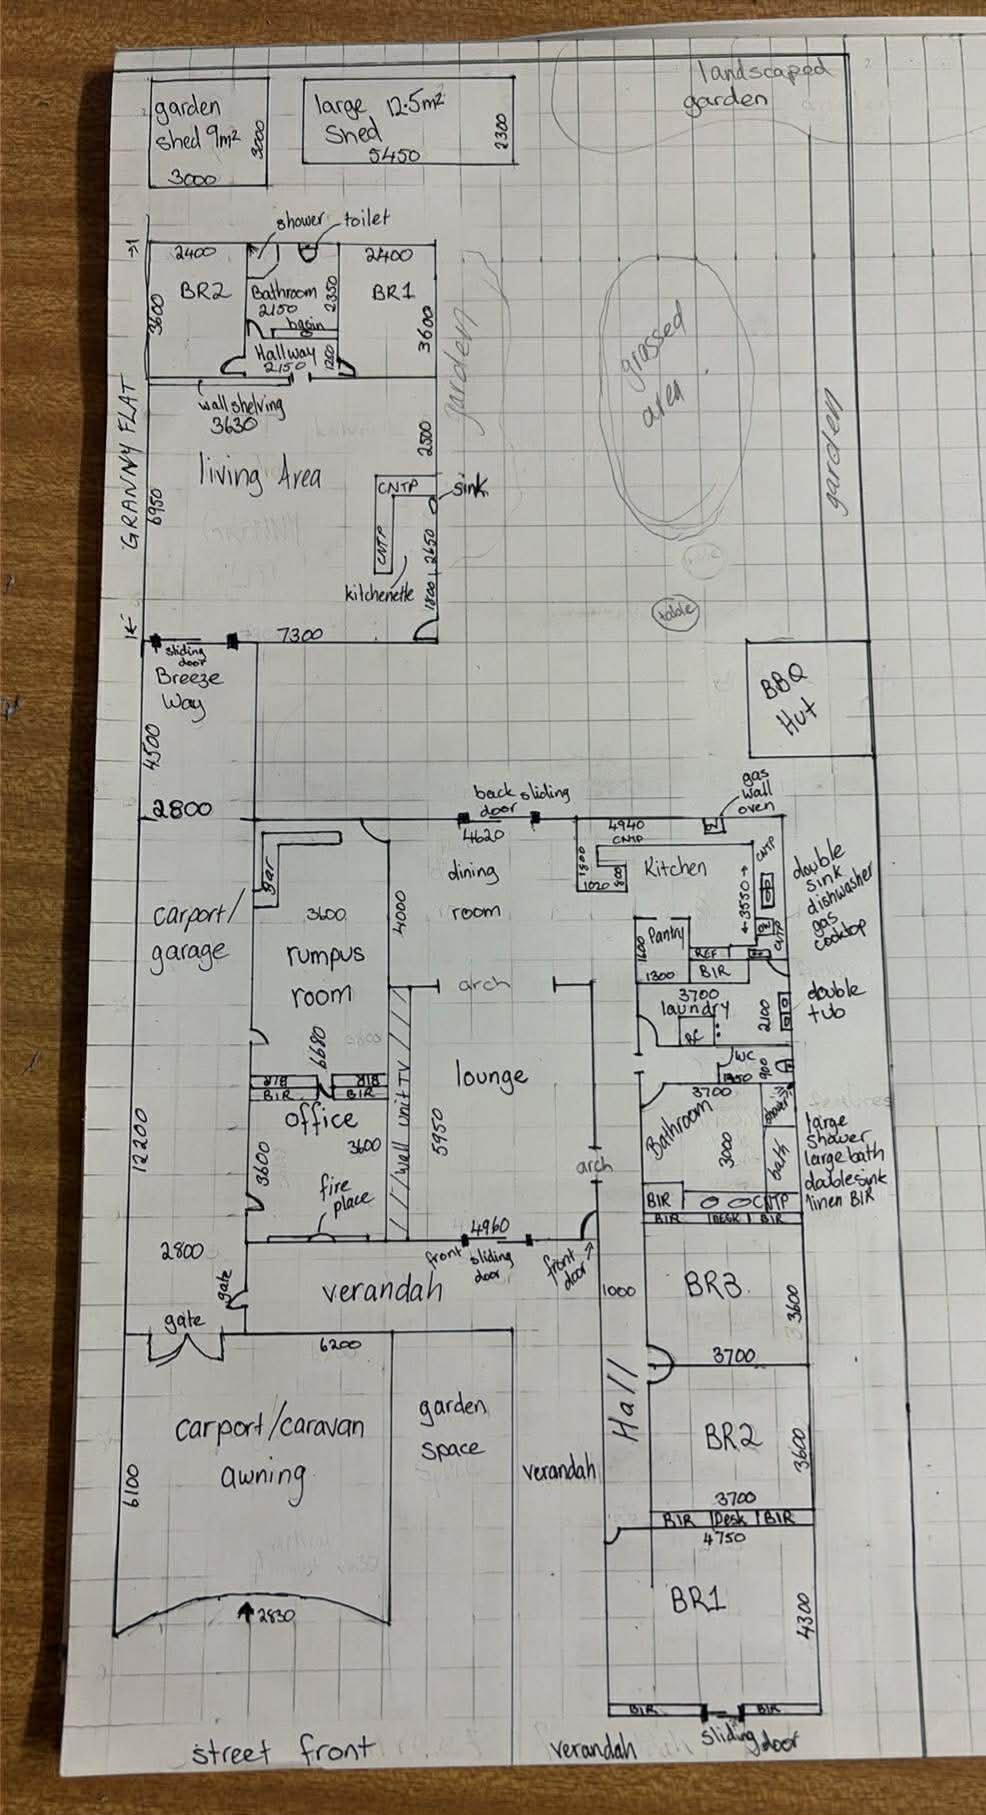 landscaped
garden
garden
shed 9m²
3000
3000
large 12.5m²
Shed
5450
2300
shower
toilet
2400
BR2
3600
Bathroom
2150
2350
basin
2400
BR1
3600
Hallway
2150
1200
wall shelving
3630
GRANNY FLAT
6950
living Area
2500
CNTP
sink
CNTP
2650
kitchenette
1800
7300
garden
grassed
area
garden
table
sliding
door
Breeze
Way
4500
2800
BBQ
Hut
back sliding
door
4620
gas
wall
oven
4940
CNTP
1800
1020
800
Kitchen
CNTP
3550
CNTP
double
sink
dishwasher
gas
cooktop
bar
3600
rumpus
room
6680
4000
dining
room
carport/
garage
Pantry
1600
1300
REF
BIR
arch
3700
laundry
2100
double
tub
WC
900
BIR
BIR
BIR
BIR
office
3600
3600
fire
place
wall unit TV
lounge
5950
arch
3700
Bathroom
3000
shower
bath
BIR
CNTP
BIR
DESK
BIR
large
shower
large bath
double sink
linen BIR
12200
2800
gate
gate
4960
front
sliding
door
front
door
verandah
6200
1000
Hall
BR3
3600
3700
BR2
3600
3700
BIR
Desk
BIR
4750
BR1
4300
BIR
BIR
sliding door
carport/caravan
awning
6100
2830
garden
space
verandah
street front
verandah